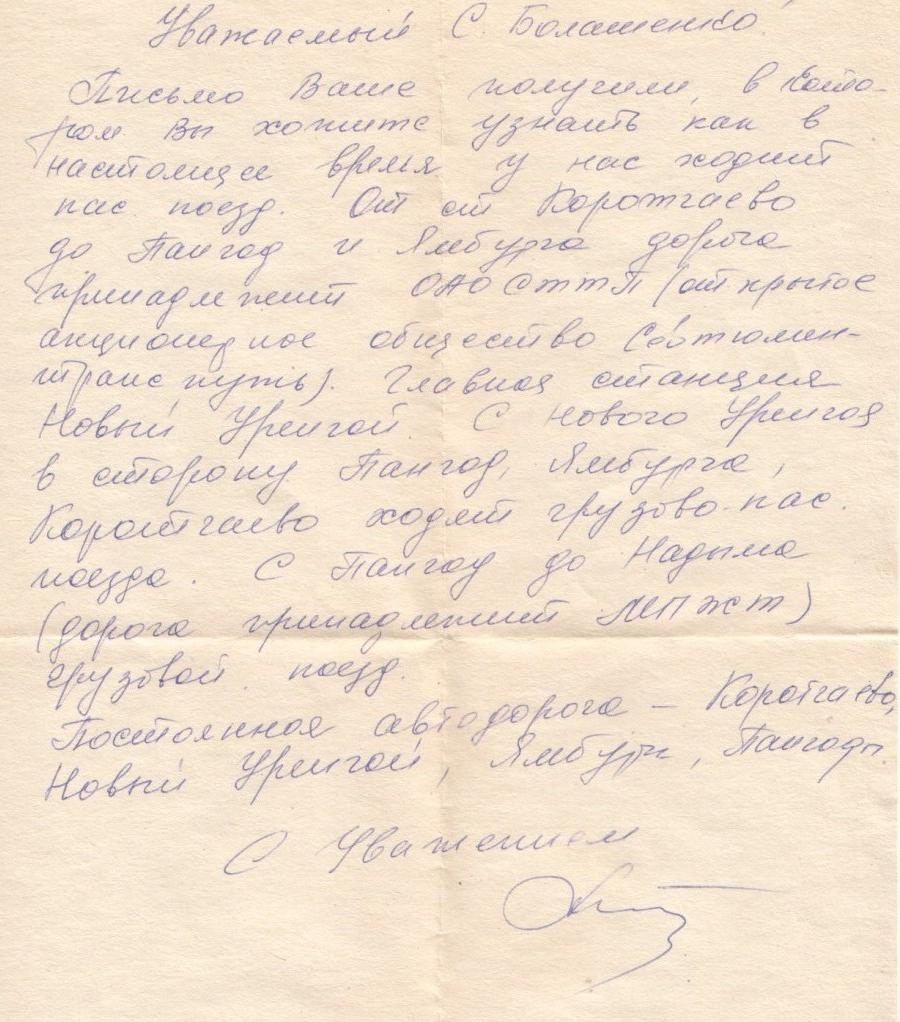 Уважаемый С. Болашенко!
Письмо Ваше получили, в кото-
ром Вы хотите узнать как в
настоящее время у нас ходит
пас поезд. От ст Коротчаево
до Пангод и Ямбурга дорога
принадлежит ОАО СТТП (открытое
акционерное общество Севтюмен-
транспуть). Главная станция
Новый Уренгой. С Нового Уренгоя
в сторону Пангод, Ямбурга,
Коротчаево ходят грузово-пас.
поезда. С Пангод до Надыма
(дорога принадлежит МПЖТ)
грузовой поезд.
Постоянная автодорога – Коротчаево,
Новый Уренгой, Ямбург, Пангоды.
С Уважением